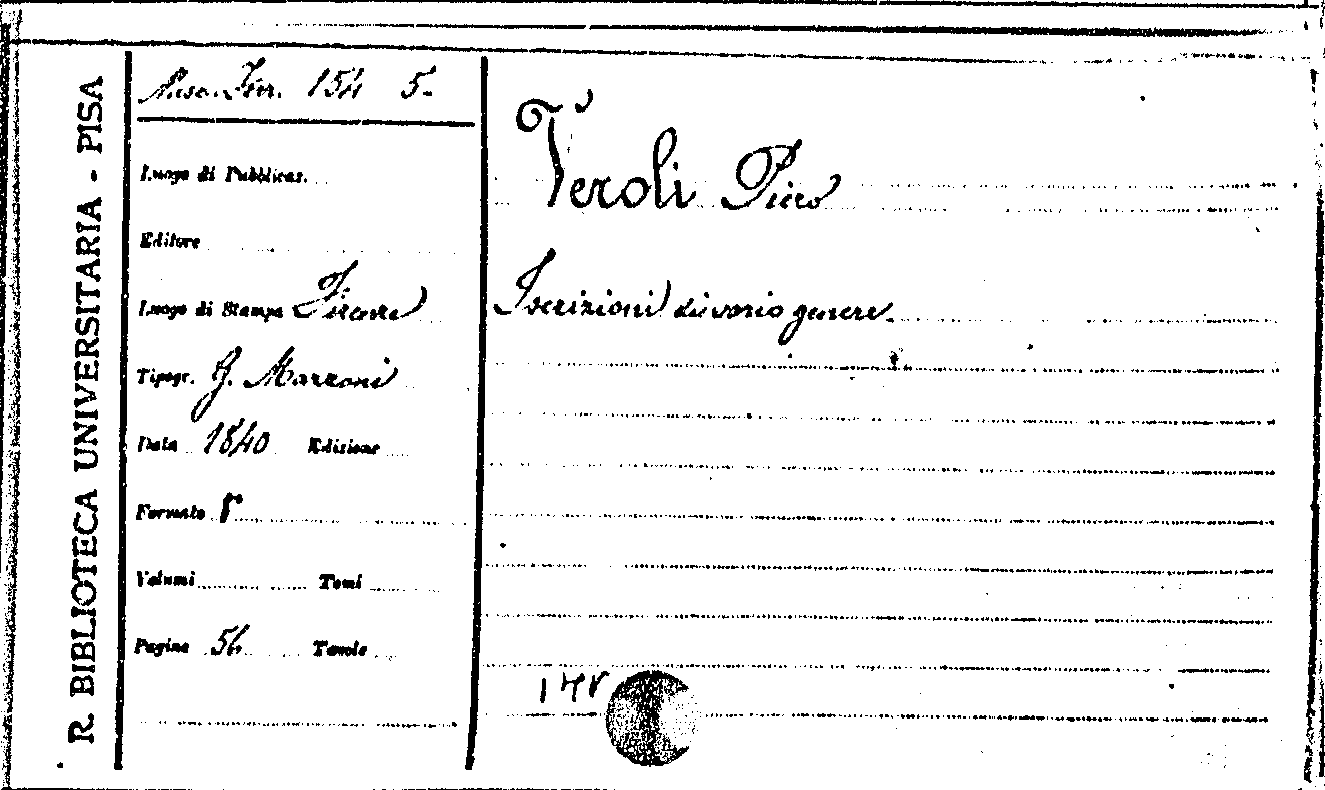 R. BIBLIOTECA UNIVERSITARIA - PISA
Misc. Fer. 154 5-
Luogo di Pubblicaz.
Editore
Luogo di Stampa Firenze
Tipogr. G. Mazzoni
Data 1840 Edizione
Formato 8
Volumi Tomi
Pagine 56 Tavole
Veroli Piero
Iscrizioni di vario genere.